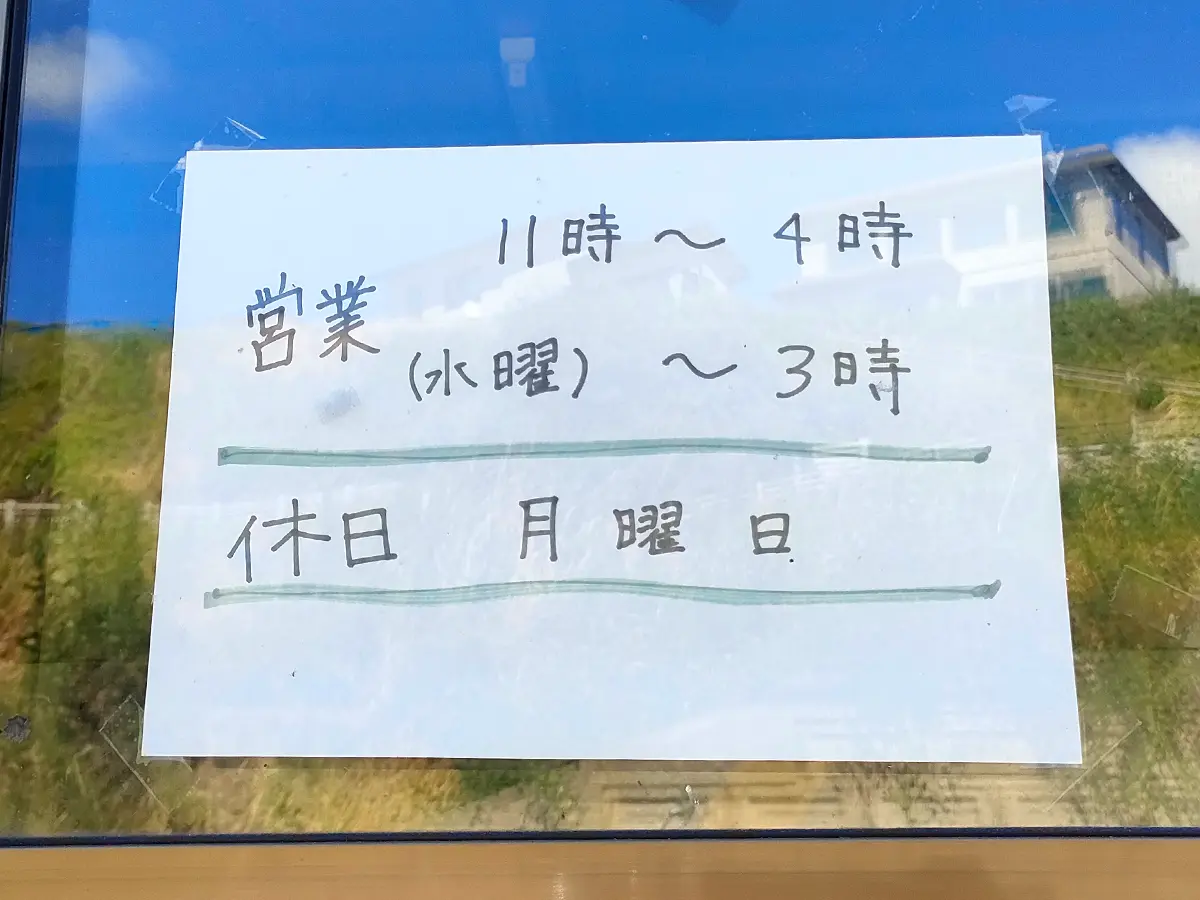 11時〜4時
営業
(水曜) 〜3時
休日 月曜日